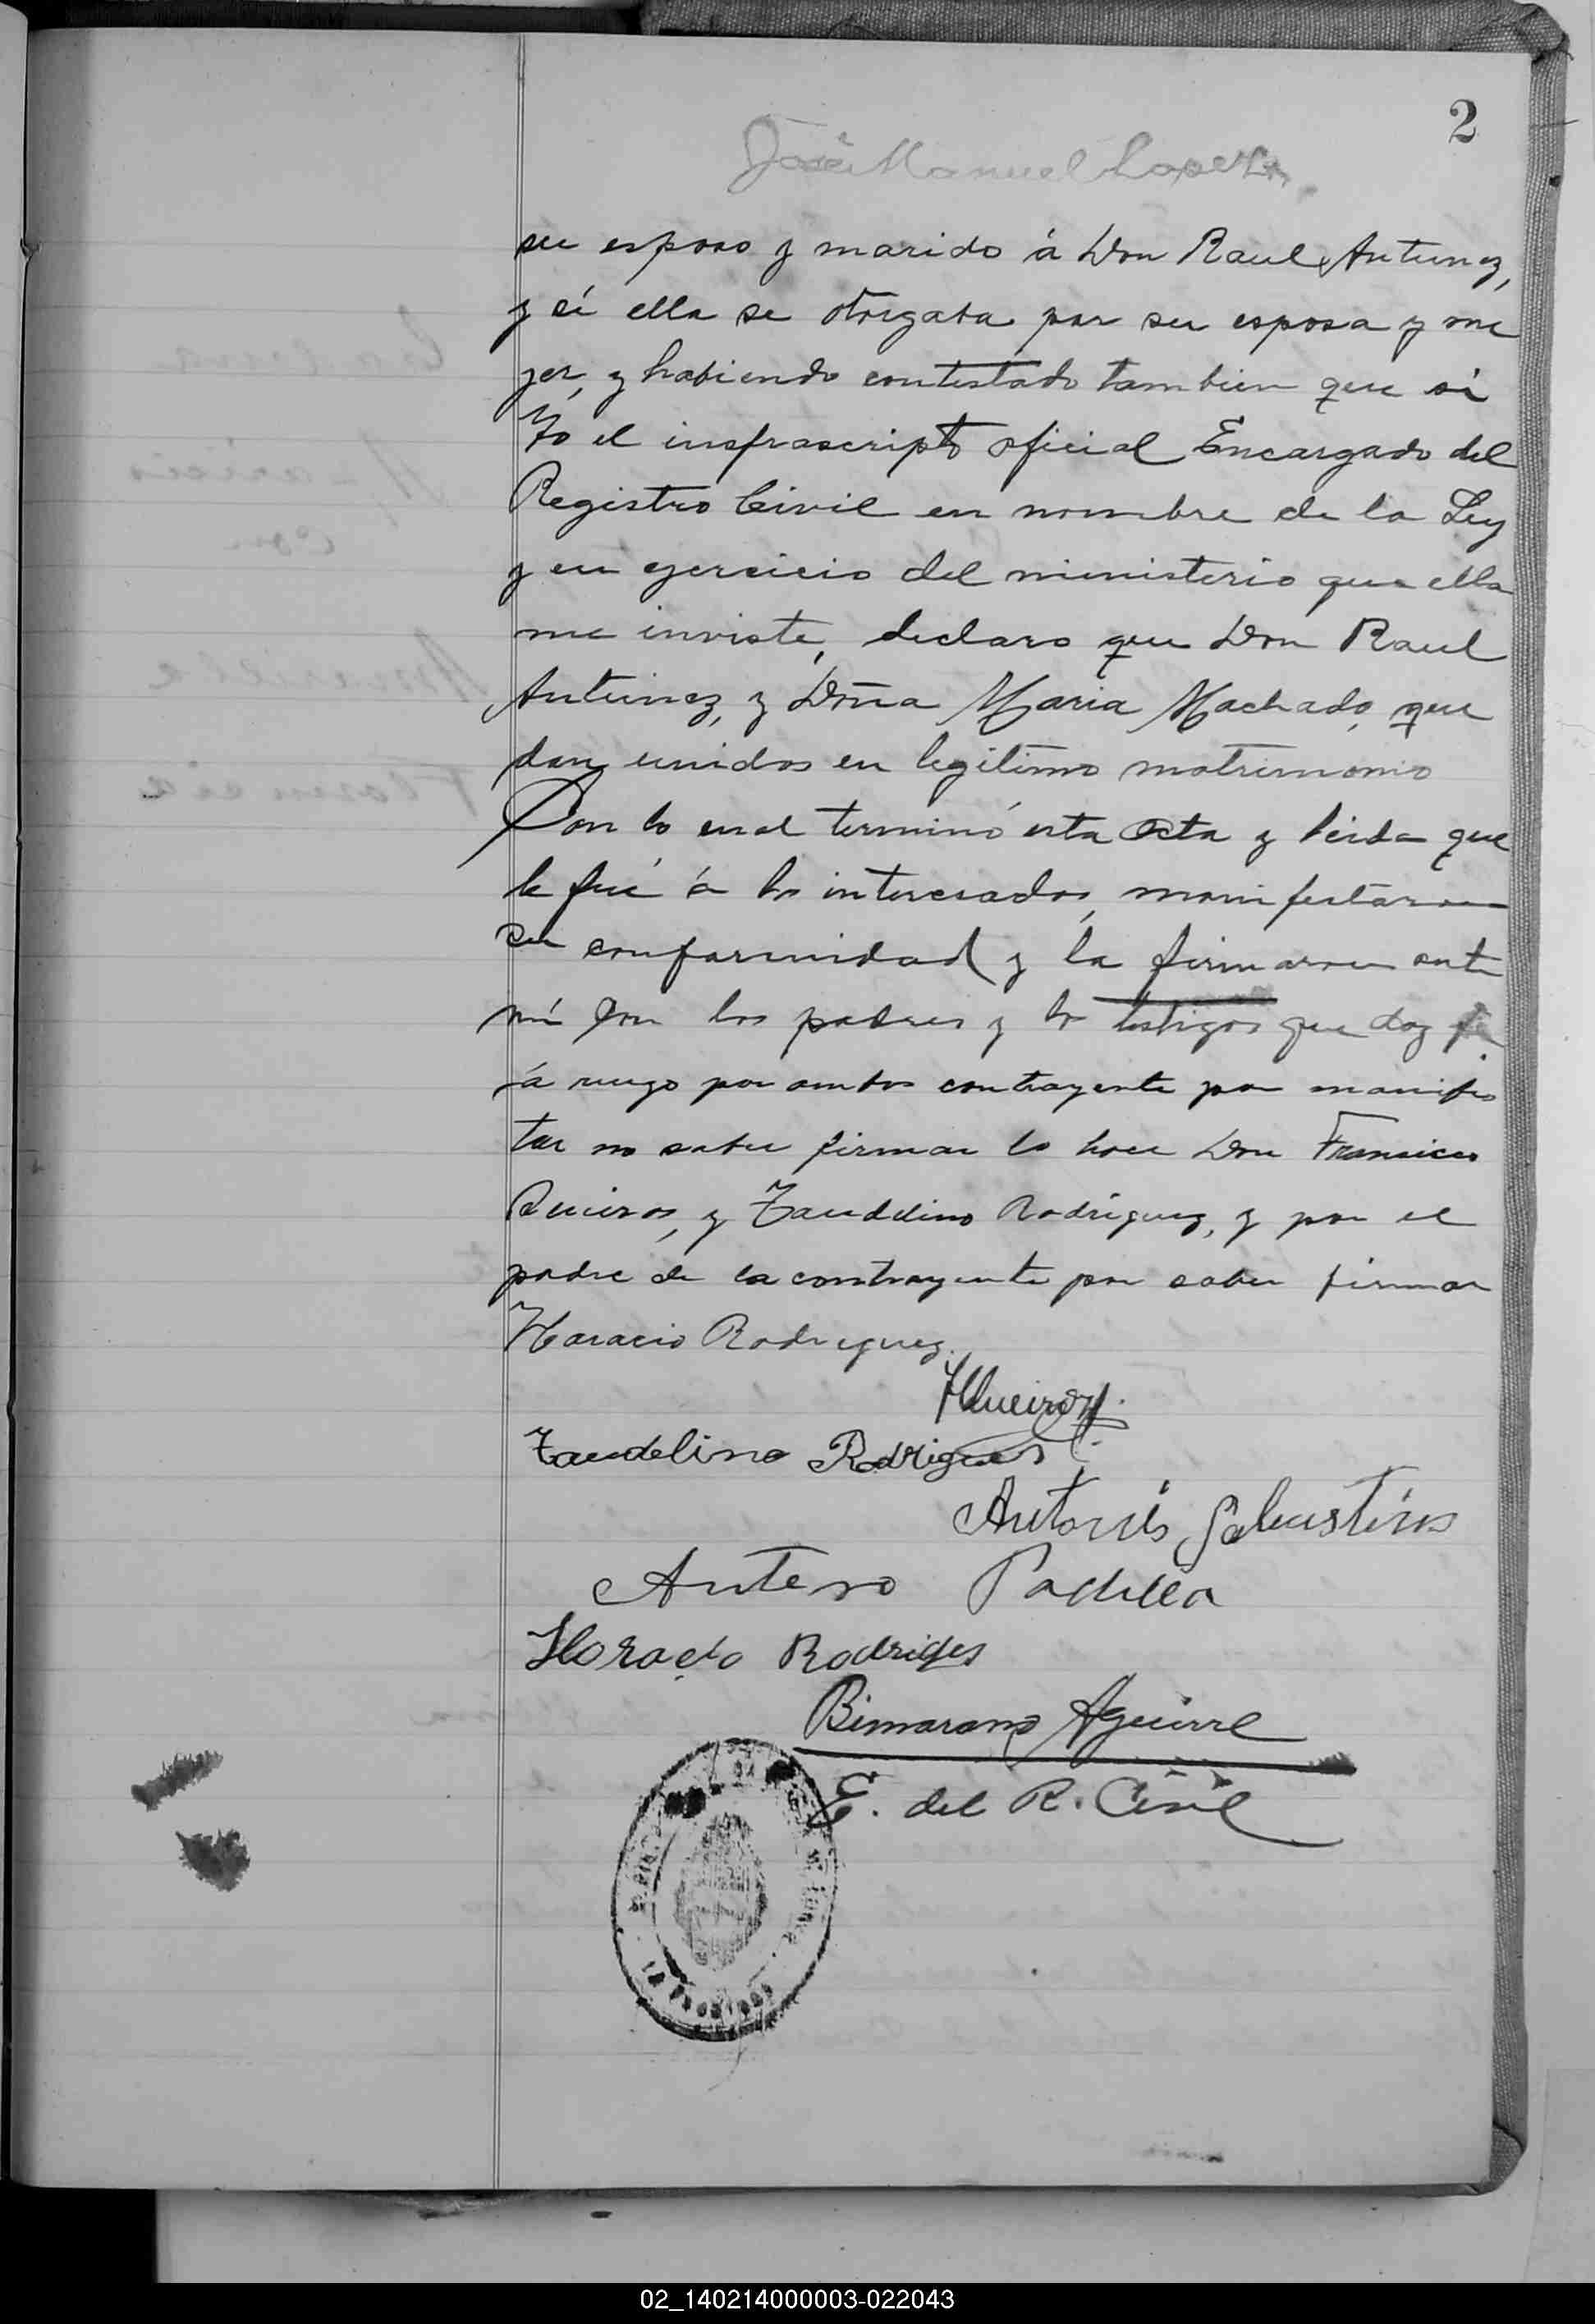 2
José Manuel Lopez
su esposo y marido á Don Raul Antunez,
y si ella se otorgaba por su esposa y mu
jer, y habiendo contestado tambien que si
Yo el insfrascripto oficial Encargado del
Registro Civil en nombre de la Ley
y en ejercicio del ministerio que ella
me inviste, declaro que Don Raul
Antunez, y Doña Maria Machado, que
dan unidos en legitimo matrimonio
Con lo cual terminó esta Acta y leida que
le fué á los interesados, manifestaron
su conformidad y la firmaron ante
mí con los padres y los testigos que doy fé
á ruego por ambos contrayente por manifes
tar no saber firmar lo hace Don Francisco
Queiros, y Taudelino Rodriguez, y por el
padre de la contrayente por saber firmar
Horacio Rodriguez.
FQueiroz
Taudelino Rodrigues
Antonio Salustino
Antero Padilla
Horacio Rodrigues
Bimarano Aguirre
E. del R. Civil
02_140214000003-022043